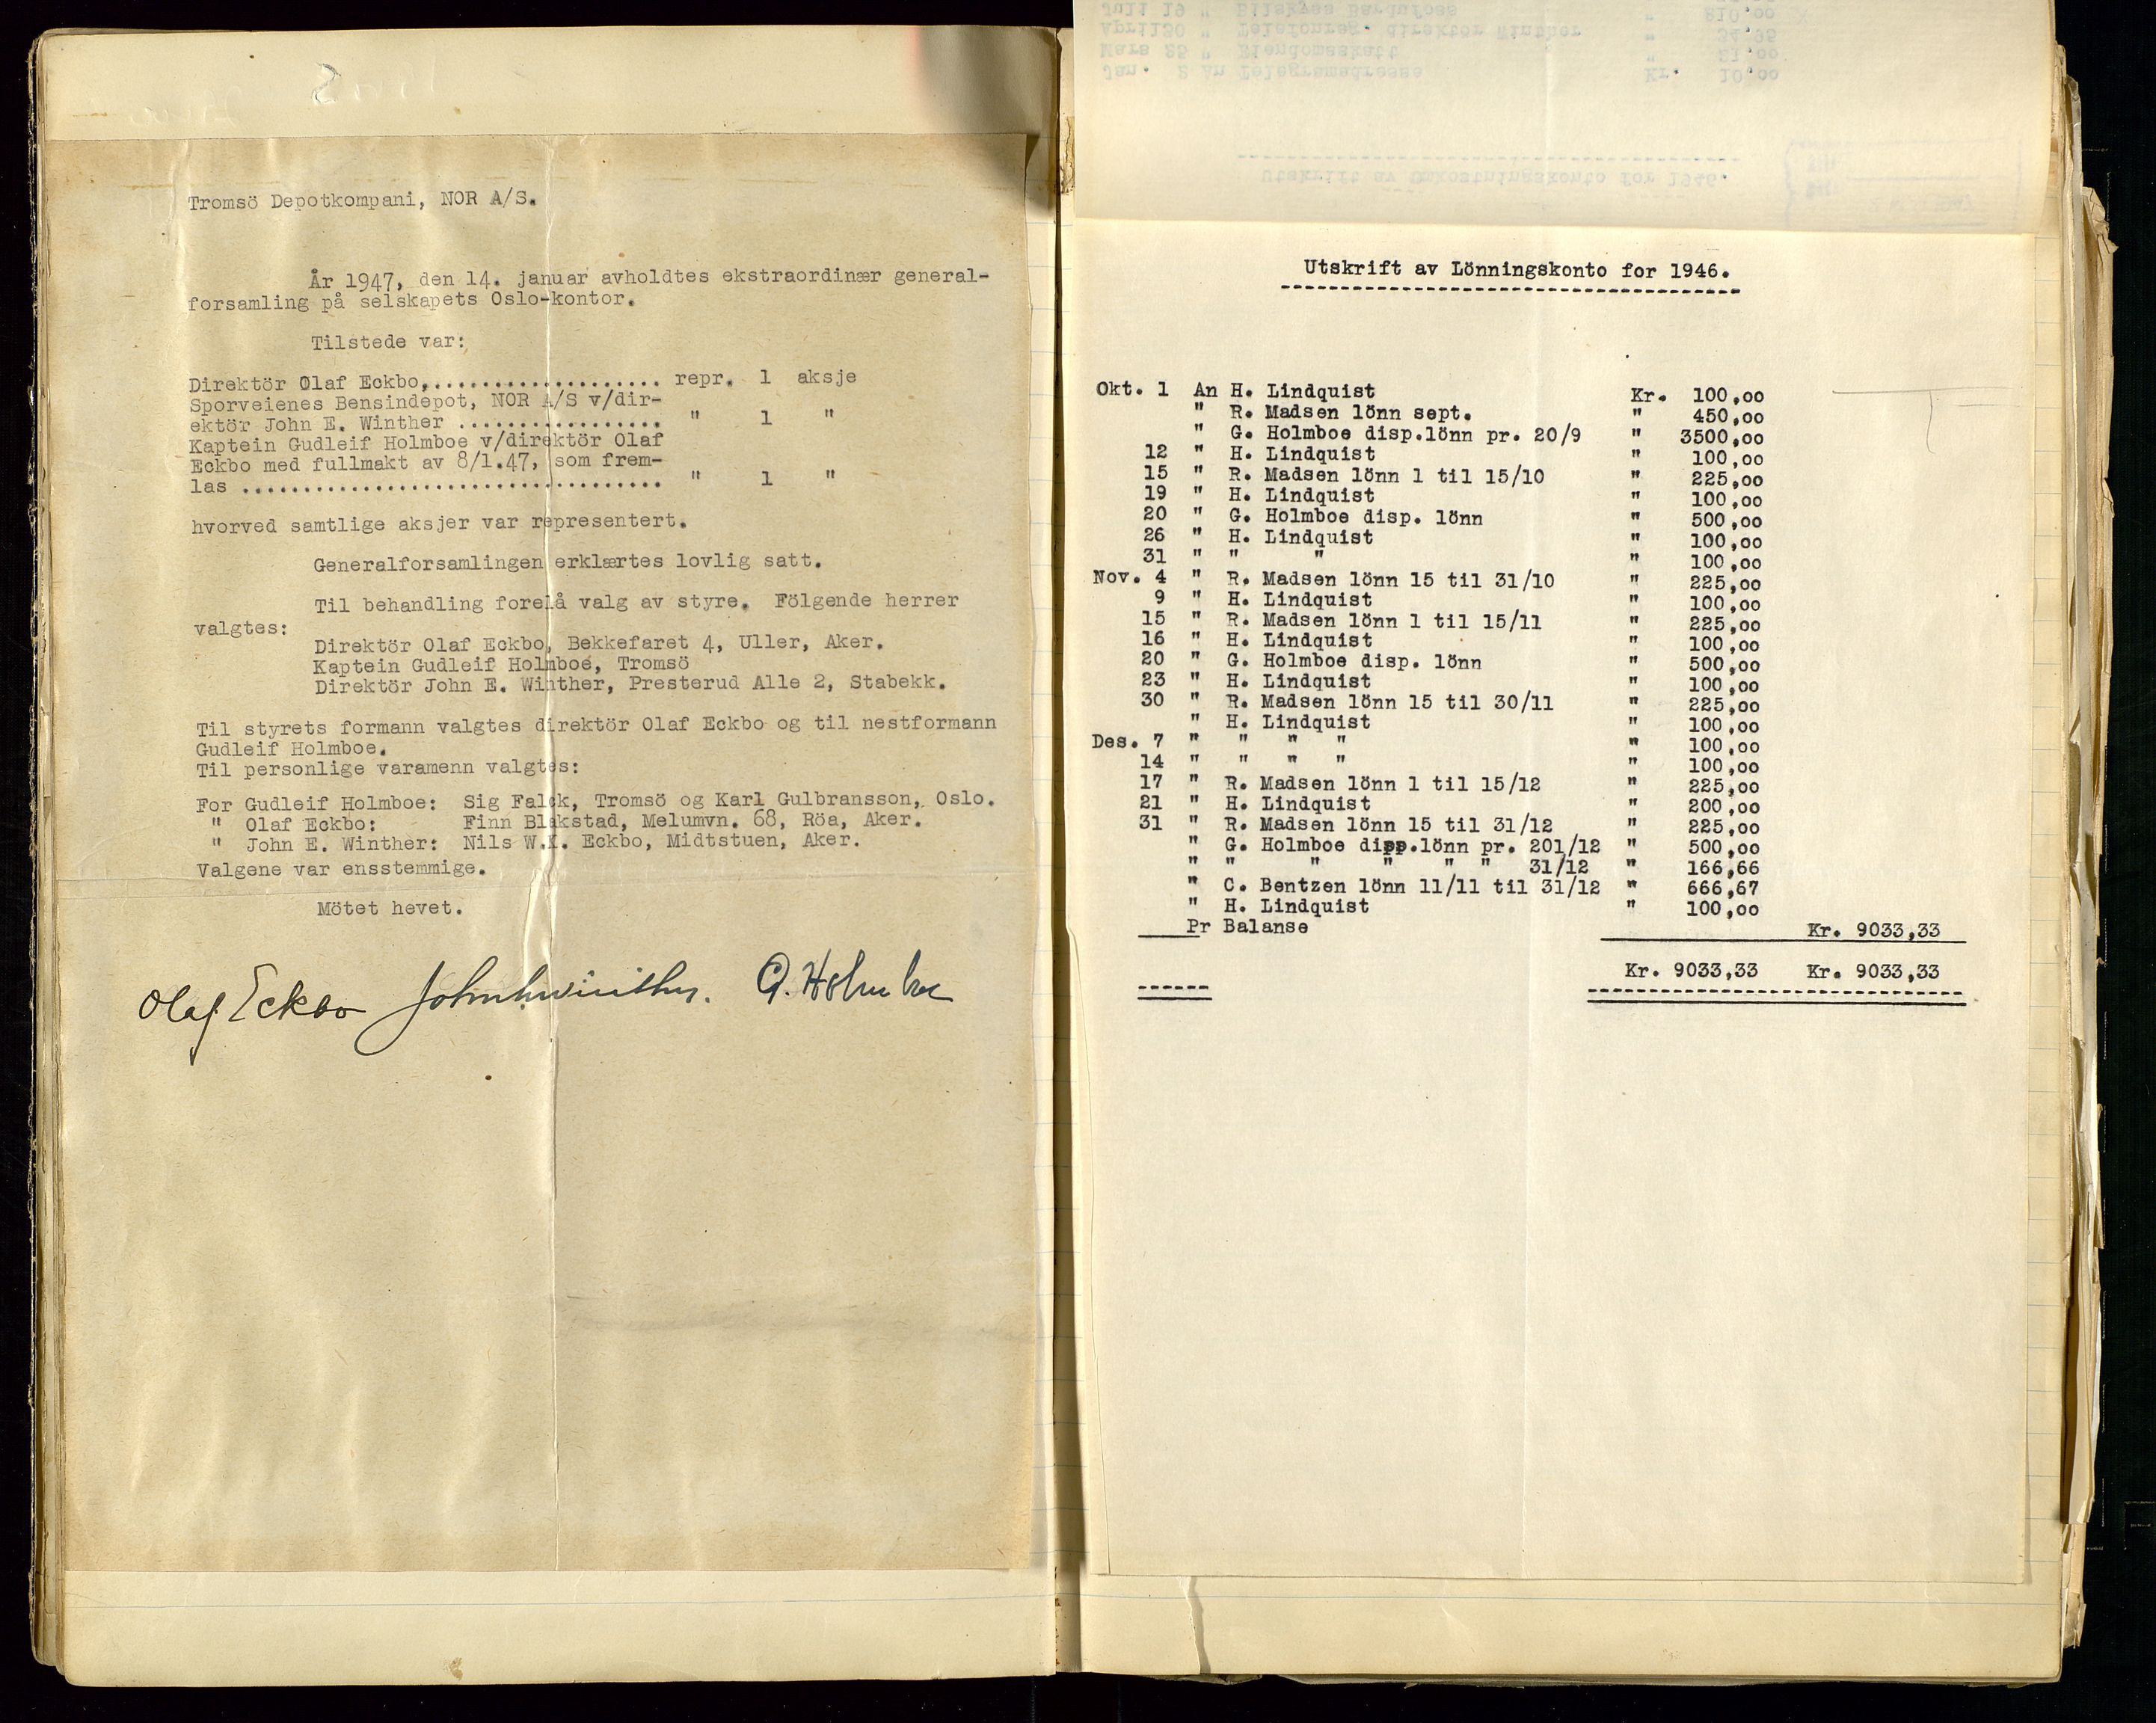 Tromsö Depotkompani, NOR A/S.
År 1947, den 14. januar avholdtes ekstraordinær general-
forsamling på selskapets Oslo-kontor.
Tilstede var:
Direktör Olaf Eckbo,................... repr. 1 aksje
Sporveienes Bensindepot, NOR A/S v/dir-
ektör John E. Winther ................. " 1 "
Kaptein Gudleif Holmboe v/direktör Olaf
Eckbo med fullmakt av 8/1.47, som frem-
las .................................. " 1 "
hvorved samtlige aksjer var representert.
Generalforsamlingen erklærtes lovlig satt.
Til behandling forelå valg av styre. Fölgende herrer
valgtes:
Direktör Olaf Eckbo, Bekkefaret 4, Uller, Aker.
Kaptein Gudleif Holmboe, Tromsö
Direktör John E. Winther, Presterud Alle 2, Stabekk.
Til styrets formann valgtes direktör Olaf Eckbo og til nestformann
Gudleif Holmboe.
Til personlige varamenn valgtes:
For Gudleif Holmboe: Sig Falck, Tromsö og Karl Gulbransson, Oslo.
" Olaf Eckbo: Finn Blakstad, Melumvn. 68, Röa, Aker.
" John E. Winther: Nils W.K. Eckbo, Midtstuen, Aker.
Valgene var ensstemmige.
Mötet hevet.
Olaf Eckbo John E. Winther. G. Holmboe
Juli 19 " Bilskyss Bardufoss " 810,00
April30 " Telefonreg. direktör Winther " 34,95
Mars 25 " Eiendomsskatt " 31,00
Jan. 2 An Telegramadresse Kr. 10,00
Utskrift av Omkostningskonto for 1946.
Utskrift av Lönningskonto for 1946.
Okt. 1 An H. Lindquist Kr. 100,00
" R. Madsen lönn sept. " 450,00
" G. Holmboe disp.lönn pr. 20/9 " 3500,00
12 " H. Lindquist " 100,00
15 " R. Madsen lönn 1 til 15/10 " 225,00
19 " H. Lindquist " 100,00
20 " G. Holmboe disp. lönn " 500,00
26 " H. Lindquist " 100,00
31 " " " " 100,00
Nov. 4 " R. Madsen lönn 15 til 31/10 " 225,00
9 " H. Lindquist " 100,00
15 " R. Madsen lönn 1 til 15/11 " 225,00
16 " H. Lindquist " 100,00
20 " G. Holmboe disp. lönn " 500,00
23 " H. Lindquist " 100,00
30 " R. Madsen lönn 15 til 30/11 " 225,00
" H. Lindquist " 100,00
Des. 7 " " " " " 100,00
14 " " " " " 100,00
17 " R. Madsen lönn 1 til 15/12 " 225,00
21 " H. Lindquist " 200,00
31 " R. Madsen lönn 15 til 31/12 " 225,00
" G. Holmboe dipp.lönn pr. 201/12 " 500,00
" " " " " " 31/12 " 166,66
" C. Bentzen lönn 11/11 til 31/12 " 666,67
" H. Lindquist " 100,00
Pr Balanse Kr. 9033,33
Kr. 9033,33 Kr. 9033,33